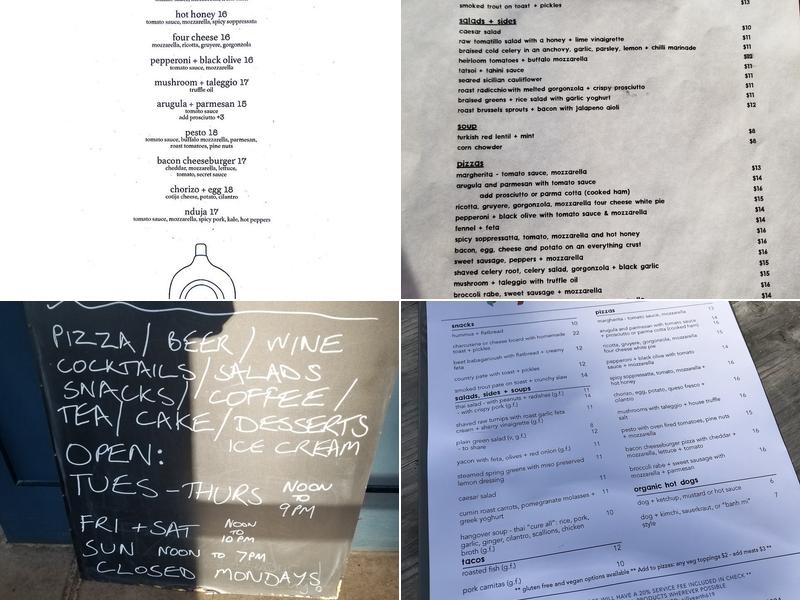 hot honey 16
tomato sauce, mozzarella, spicy soppressata
four cheese 16
mozzarella, ricotta, gruyere, gorgonzola
pepperoni + black olive 16
tomato sauce, mozzarella
mushroom + taleggio 17
truffle oil
arugula + parmesan 15
tomato sauce
add prosciutto +3
pesto 18
tomato sauce, buffalo mozzarella, parmesan,
roast tomatoes, pine nuts
bacon cheeseburger 17
cheddar, mozzarella, lettuce,
tomato, secret sauce
chorizo + egg 18
cotija cheese, potato, cilantro
nduja 17
tomato sauce, mozzarella, spicy pork, kale, hot peppers
smoked trout on toast + pickles $13
salads + sides
caesar salad $10
raw tomatillo salad with a honey + lime vinaigrette $11
braised cold celery in an anchovy, garlic, parsley, lemon + chilli marinade $11
heirloom tomatoes + buffalo mozzarella
tatsoi + tahini sauce $11
seared sicilian cauliflower $11
roast radicchio with melted gorgonzola + crispy prosciutto $11
braised greens + rice salad with garlic yoghurt $11
roast brussels sprouts + bacon with jalapeno aioli $12
soup
turkish red lentil + mint $8
corn chowder $8
pizzas
margherita - tomato sauce, mozzarella $13
arugula and parmesan with tomato sauce $14
add prosciutto or parma cotta (cooked ham) $16
ricotta, gruyere, gorgonzola, mozzarella four cheese white pie $15
pepperoni + black olive with tomato sauce & mozzarella $14
fennel + feta $14
spicy soppressatta, tomato, mozzarella and hot honey $16
bacon, egg, cheese and potato on an everything crust $16
sweet sausage, peppers + mozzarella $16
shaved celery root, celery salad, gorgonzola + black garlic $15
mushroom + taleggio with truffle oil $15
broccoli rabe, sweet sausage + mozzarella $16
$14
PIZZA / BEER / WINE
COCKTAILS / SALADS
SNACKS / COFFEE /
TEA / CAKE / DESSERTS
ICE CREAM
OPEN:
TUES - THURS NOON TO 9PM
FRI + SAT NOON TO 10PM
SUN NOON TO 7PM
CLOSED MONDAYS
snacks
hummus + flatbread 10
charcuterie or cheese board with homemade 22
toast + pickles
beet babaganoush with flatbread + creamy 12
feta
country pate with toast + pickles 12
smoked trout pate on toast + crunchy slaw 14
salads, sides + soups
thai salad - with peanuts + radishes (g.f.) 11
- with crispy pork (g.f.) 14
shaved raw turnips with roast garlic feta 11
cream + sherry vinaigrette (g.f.)
plain green salad (v, g.f.) 8
- to share 12
yacon with feta, olives + red onion (g.f.) 11
steamed spring greens with miso preserved 11
lemon dressing
caesar salad 11
cumin roast carrots, pomegranate molasses + 11
greek yoghurt
hangover soup - thai "cure all": rice, pork, 10
garlic, ginger, cilantro, scallions, chicken
broth (g.f.)
tacos
roasted fish (g.f.) 12
pork carnitas (g.f.) 10
pizzas
margherita - tomato sauce, mozzarella 13
arugula and parmesan with tomato sauce 14
+ prosciutto or parma cotta (cooked ham) 16
ricotta, gruyere, gorgonzola, mozzarella 16
four cheese white pie
pepperoni + black olive with tomato 16
sauce + mozzarella
spicy soppressatta, tomato, mozzarella + 16
hot honey
chorizo, egg, potato, queso fresco + 16
cilantro
mushrooms with taleggio + house truffle 16
salt
pesto with oven fired tomatoes, pine nuts 15
+ mozzarella
bacon cheeseburger pizza with cheddar + 16
mozzarella, lettuce + tomato
broccoli rabe + sweet sausage with 16
mozzarella + parmesan
organic hot dogs
dog + ketchup, mustard or hot sauce 6
dog + kimchi, sauerkraut, or "banh mi" 7
style
** gluten free and vegan options available ** Add to pizzas: any veg toppings $2 - add meats $3 **
WILL HAVE A 20% SERVICE FEE INCLUDED IN CHECK **
PRODUCTS WHEREVER POSSIBLE